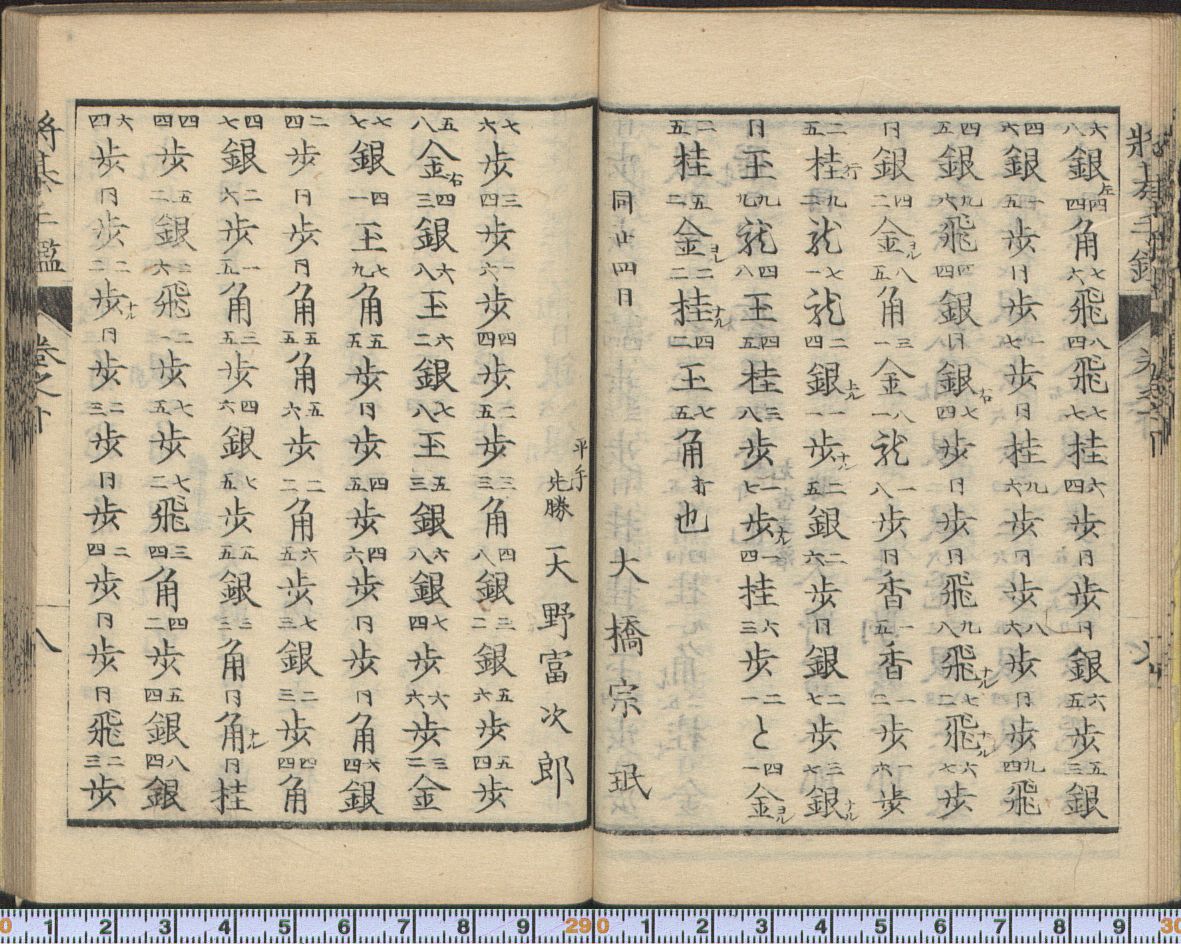 將棊手鑑
六八銀左四四角七六飛八四飛七七桂六四歩同歩同銀六五歩五三銀
四六銀一五歩同歩一七歩同桂九六歩同歩八六歩同歩九四飛
四五銀九六飛四四銀同銀右七四歩同歩同飛九八飛ナル七二飛ナル六七歩
同銀四二金ヨル八五角三一金八一龍一八歩同香一五香一二歩一六歩
二五桂行九二龍七一龍二四銀上ル一一歩ナル二五銀二六歩同銀二七歩三七銀ナル
同王九九龍四八王四五桂三八歩一七歩ナル一四桂六三歩二一と四一金ヨル
二五桂五二金ヨル二二桂ナル四二王七五角打也
同廿四日 大橋宗珉
平手 此勝 一天野富次郎
七六歩三四歩一六歩四四歩二五歩三三角四八銀三二銀五六歩五四歩
五八金右四三銀六八王六二銀七八王五三銀六八銀七四歩六六歩三二金
七七銀四一王七九角五五歩同歩四五歩四六歩同歩同角六四銀
二四歩同歩同角五五角五六歩二二角六五歩七三銀二三歩四四角
四七銀二六歩一五角三五歩四六銀七五歩五五銀三三角同角ナル同桂
四四歩五二銀二六飛二一歩七五歩七二飛三四角四二歩五四銀八四銀
六四歩同歩二二歩ナル同歩二三歩同歩二四歩同歩同飛二三歩
將棊手鑑 巻之下 八
0 1 2 3 4 5 6 7 8 9 29 0 1 2 3 4 5 6 7 8 9 30